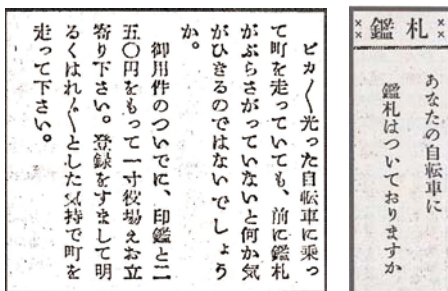 ××鑑札××
あなたの自転車に
鑑札はついておりますか
ピカ〱光った自転車に乗っ
て町を走っていても、前に鑑札
がぶらさがっていないと何か気
がひきるのではないでしょう
か。
御用作のついでに、印鑑と二
五〇円をもって一寸役場えお立
寄り下さい。登録をすまして明
るくはれ〲とした気持で町を
走って下さい。